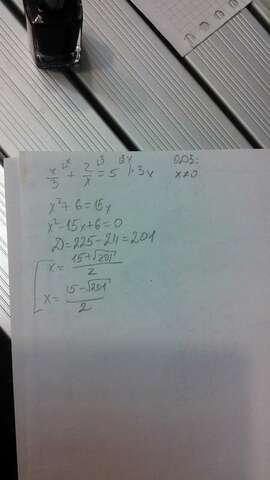 x/3 ^x + 2/x ^3 = 5 ^3x |·3x ОДЗ: x≠0
x²+6=15x
x²-15x+6=0
D=225-24=201
[ x= (15+√201)/2
x= (15-√201)/2